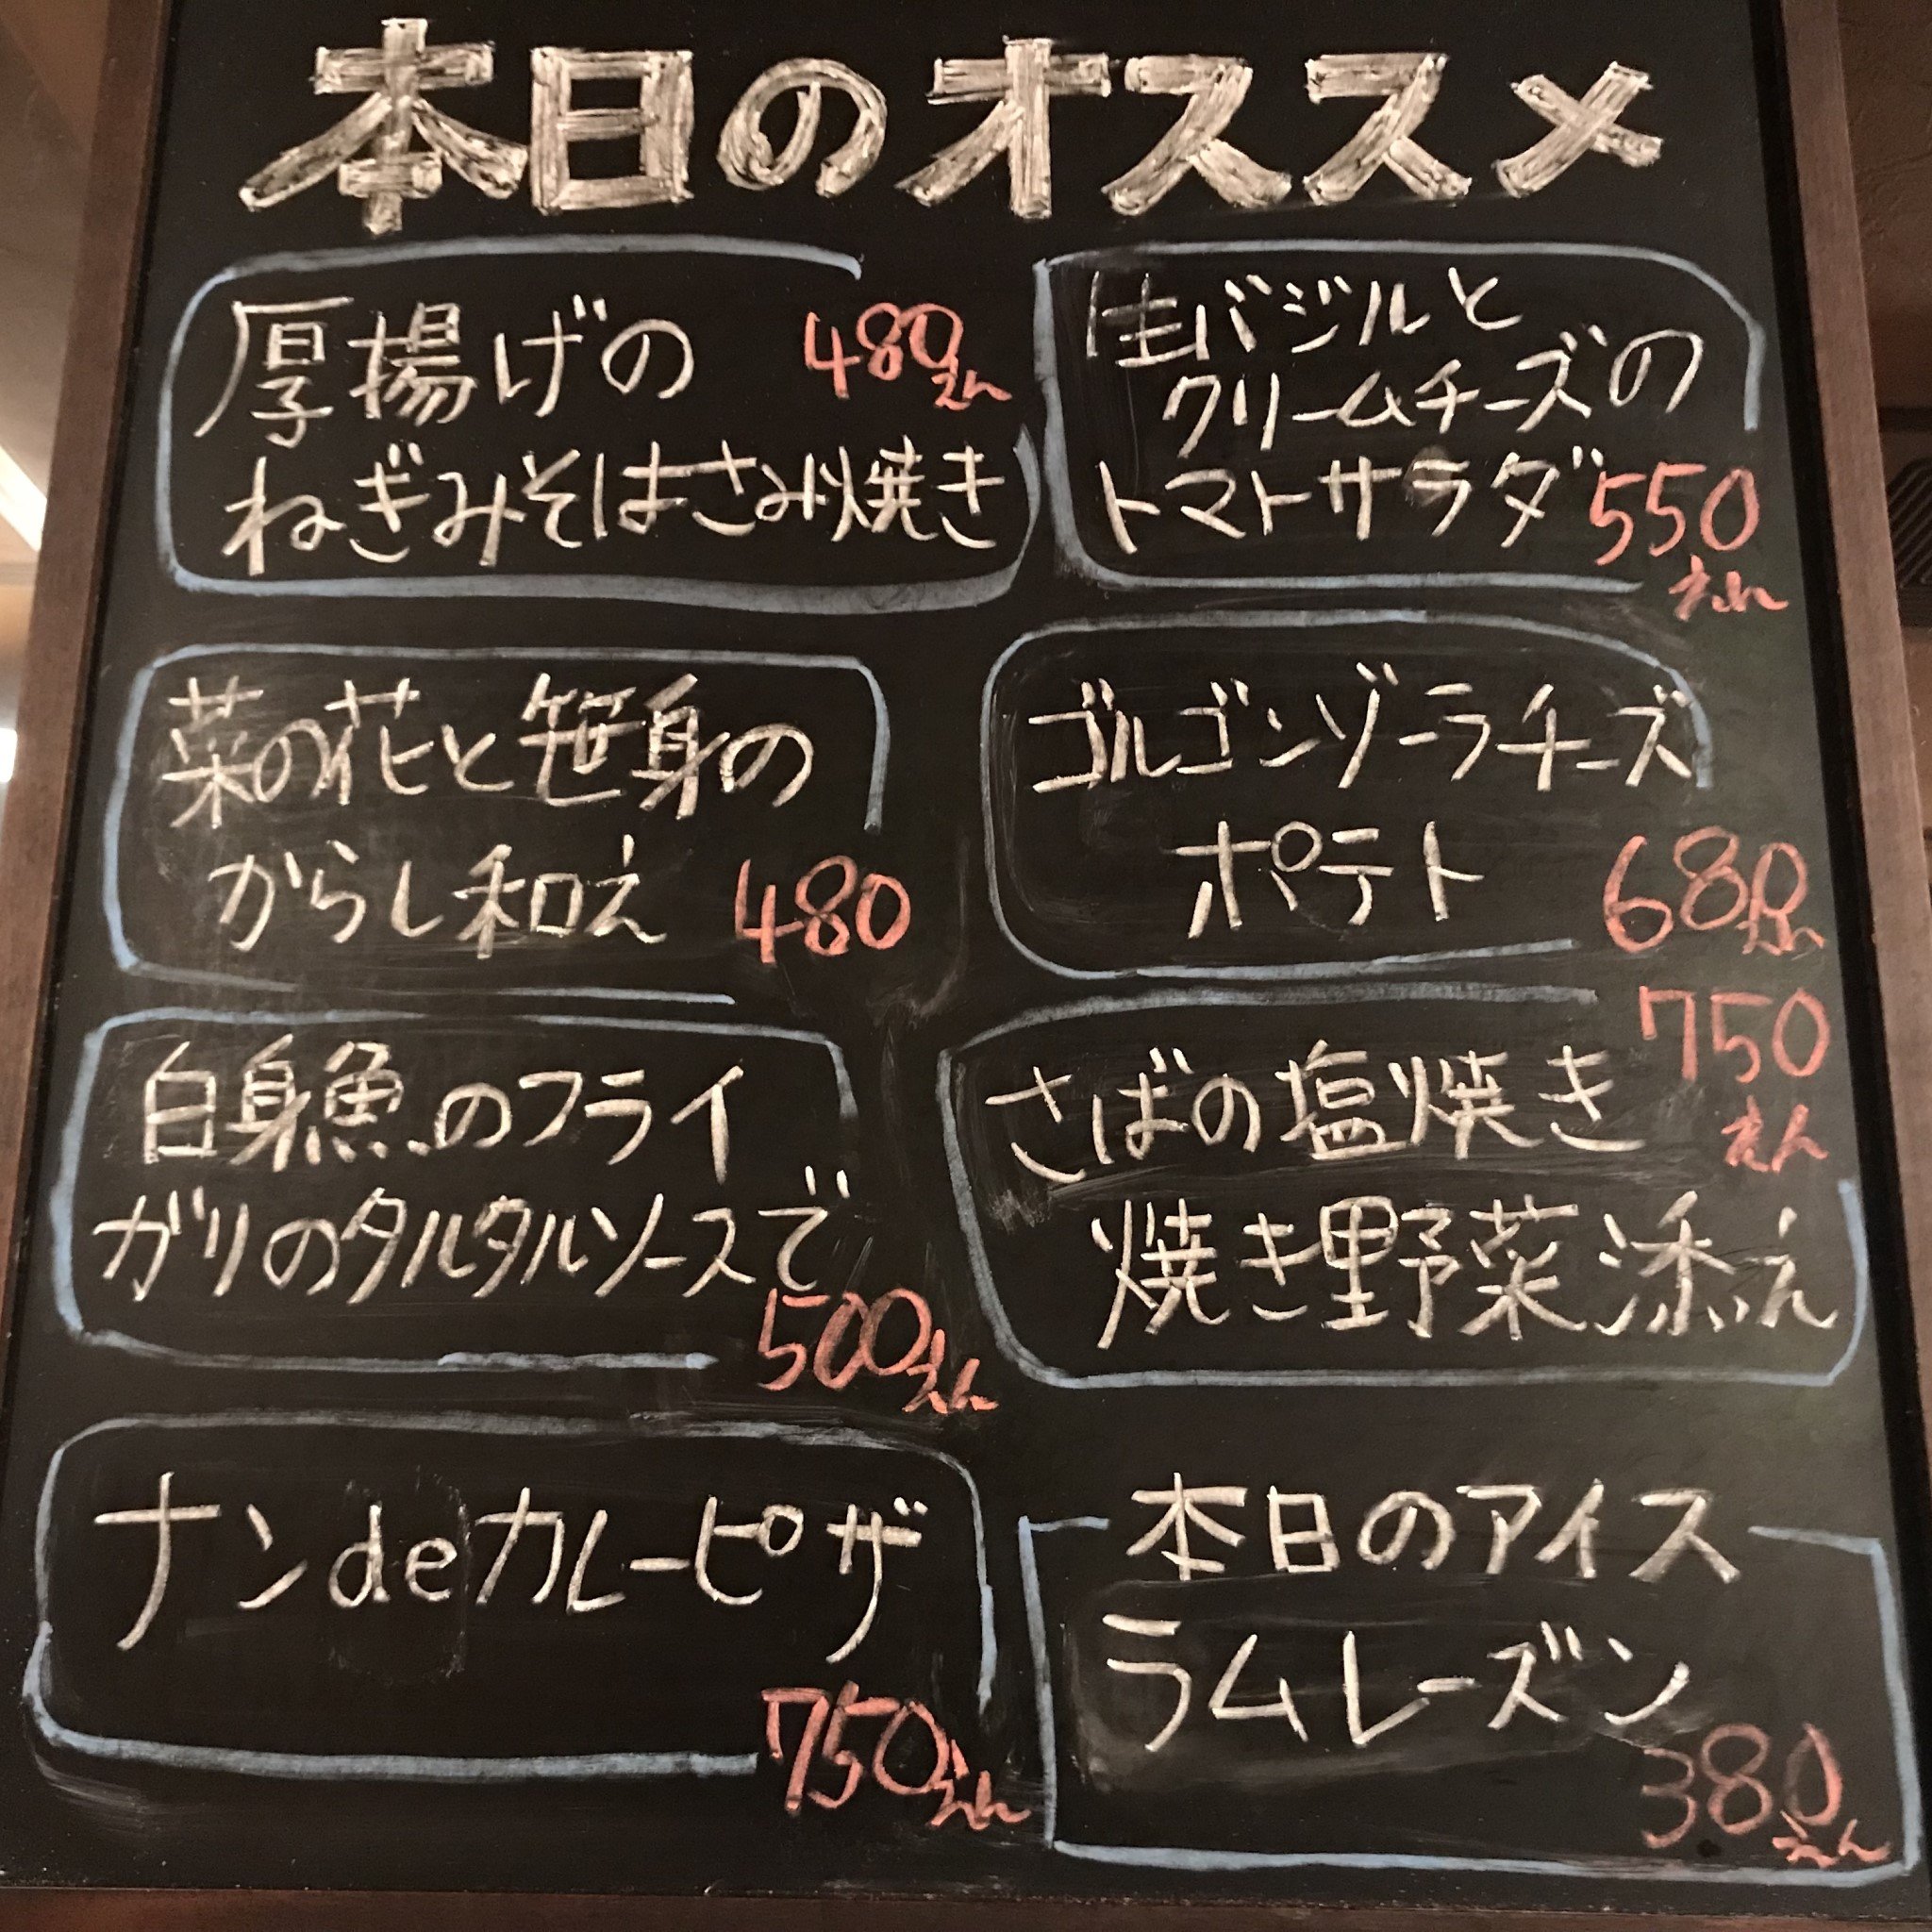 本日のオススメ
厚揚げの 480えん
ねぎみそはさみ焼き
生バジルと
クリームチーズの
トマトサラダ 550
えん
菜の花と笹身の
からし和え 480
ゴルゴンゾーラチーズ
ポテト 680えん
白身魚のフライ
ガリのタルタルソースで
500えん
750
さばの塩焼き えん
焼き野菜添え
ナンdeカレーピザ
750えん
本日のアイス
ラムレーズン
380えん